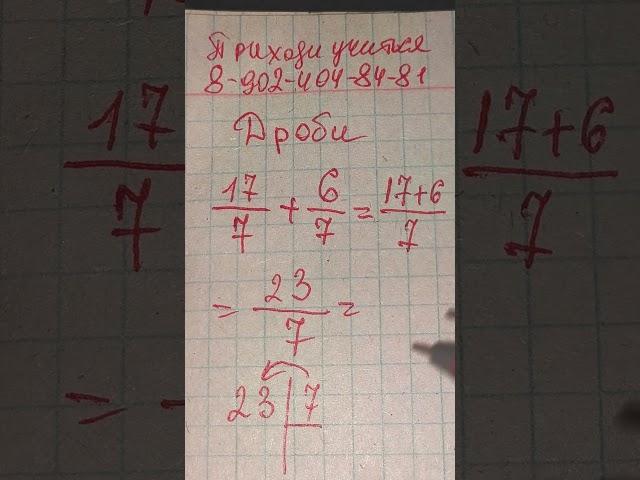 Приходи учиться
8-902-404-84-81
Дроби
17/7 + 6/7 = 17+6/7
= 23/7 =
23 | 7